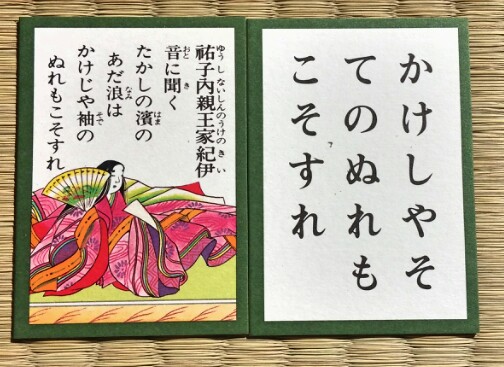 ゆうしないしんのうけのきい
祐子内親王家紀伊
おと き
音に聞く
はま
たかしの濱の
なみ
あだ浪は
そで
かけじや袖の
ぬれもこそすれ
かけしやそ
てのぬれも
こそすれ